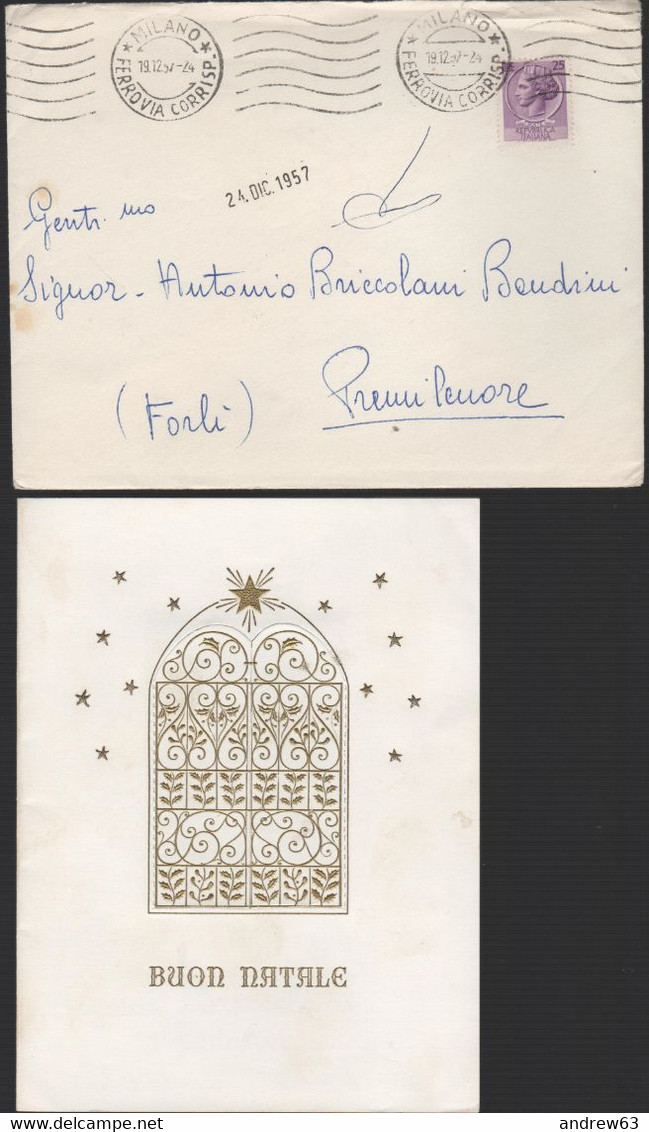 MILANO
19.12.57-24
FERROVIA CORRISP.
MILANO
19.12.57-24
FERROVIA CORRISP.
25
REPVBBLICA
ITALIANA
24.DIC.1957
Gent. mo
Signor - Antonio Briccolani Bendini
(Forlì) Premilcuore
BUON NATALE
andrew63